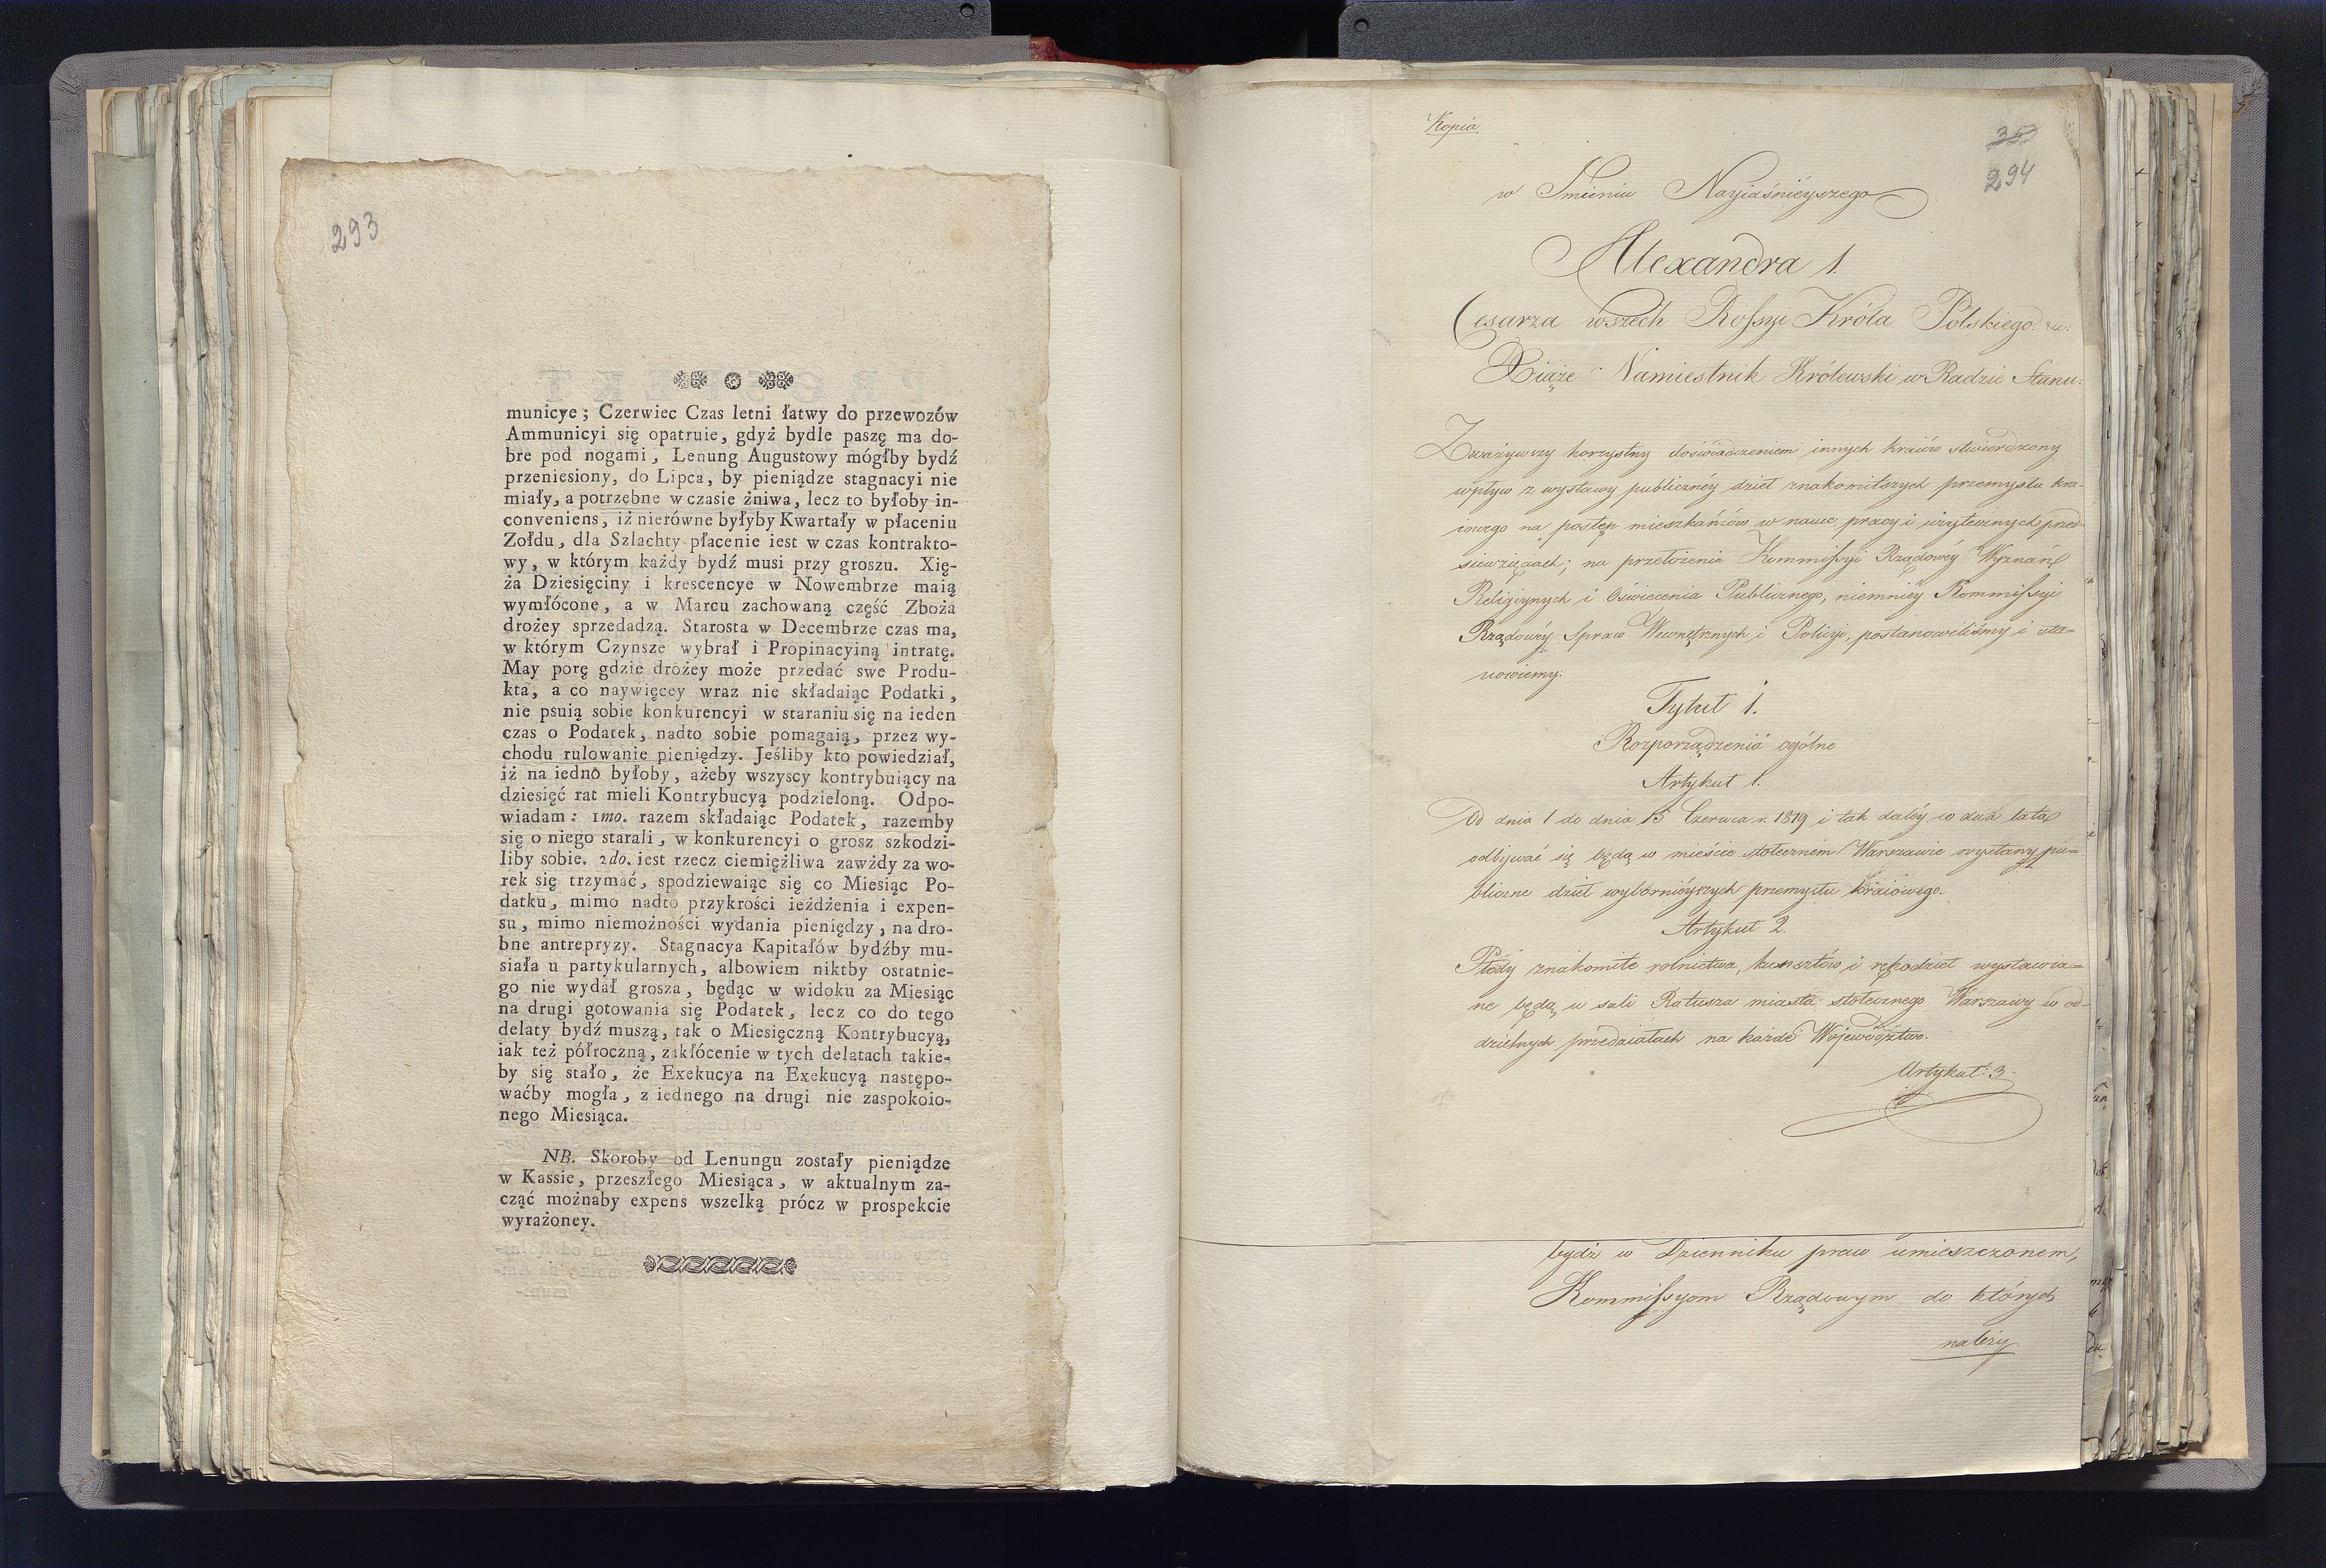 293
municye ; Czerwiec Czas letni łatwy do przewozów
Ammunicyi się opatruie, gdyż bydle paszę ma do-
bre pod nogami, Lenung Augustowy mógłby bydź
przeniesiony, do Lipca, by pieniądze stagnacyi nie
miały, a potrzebne w czasie żniwa, lecz to byłoby in-
conveniens, iż nierówne byłyby Kwartały w płaceniu
Zołdu, dla Szlachty płacenie iest w czas kontrakto-
wy, w którym każdy bydź musi przy groszu. Xię-
ża Dziesięciny i krescencye w Nowembrze maią
wymłócone, a w Marcu zachowaną część Zboża
drożey sprzedadzą. Starosta w Decembrze czas ma,
w którym Czynsze wybrał i Propinacyiną intratę.
May porę gdzie drożey może przedać swe Produ-
kta, a co naywięcey wraz nie składaiąc Podatki,
nie psuią sobie konkurencyi w staraniu się na ieden
czas o Podatek, nadto sobie pomagaią, przez wy-
chodu rulowanie pieniędzy. Jeśliby kto powiedział,
iż na iedno byłoby, ażeby wszyscy kontrybuiący na
dziesięć rat mieli Kontrybucyą podzieloną. Odpo-
wiadam: 1mo. razem składaiąc Podatek, razemby
się o niego starali, w konkurencyi o grosz szkodzi-
liby sobie. 2do. iest rzecz ciemiężliwa zawżdy za wo-
rek się trzymać, spodziewaiąc się co Miesiąc Po-
datku, mimo nadto przykrości ieżdżenia i expen-
su, mimo niemożności wydania pieniędzy, na dro-
bne antrepryzy. Stagnacya Kapitałów bydźby mu-
siała u partykularnych, albowiem niktby ostatnie-
go nie wydał grosza, będąc w widoku za Miesiąc
na drugi gotowania się Podatek, lecz co do tego
delaty bydź muszą, tak o Miesięczną Kontrybucyą,
iak też półroczną, zakłócenie w tych delatach takie-
by się stało, że Exekucya na Exekucyą następo-
waćby mogła, z iednego na drugi nie zaspokoio-
nego Miesiąca.
NB. Skoroby od Lenungu zostały pieniądze
w Kassie, przeszłego Miesiąca, w aktualnym za-
cząć możnaby expens wszelką prócz w prospekcie
wyrażoney.
Kopia
353
294
w Imieniu Nayiaśnieyszego
Alexandra 1.
Cesarza wszech Rossyi Króla Polskiego
Xiąże Namiestnik Królewski w Radzie Stanu.
Zważywszy korzystny doświadczeniem innych kraiów stwierdzony
wpływ z wystawy publicznéy dzieł znakomitszych przemysłu kra-
iowego na postęp mieszkańców w nauce, pracy i użytecznych przed-
siewzięciach; na przełożenie Kommissyi Rządowéy Wyznań
Religiynych i Oświecenia Publicznego, niemniéy Kommissyi
Rządowéy Spraw Wewnętrznych i Policyi, postanowiliśmy i sta=
nowiemy.
Tytuł 1.
Rozporządzenia ogólne
Artykuł 1.
Od dnia 1 do dnia 15 Czerwca r. 1819 i tak daléy co dwa lata
odbywać się będą w mieście stołecznem Warszawie wystawy pu=
bliczne dzieł wybornieyszych przemysłu kraiowego.
Artykuł 2.
Płody znakomite rolnictwa, kunsztów i rękodzieł wystawia=
ne będą w sali Ratusza miasta stołecznego Warszawy w od-
dzielnych przedziałach na każde Województwo.
Artykuł 3.
bydź w Dzienniku praw umieszczonem,
Kommissyom Rządowym do których
należy